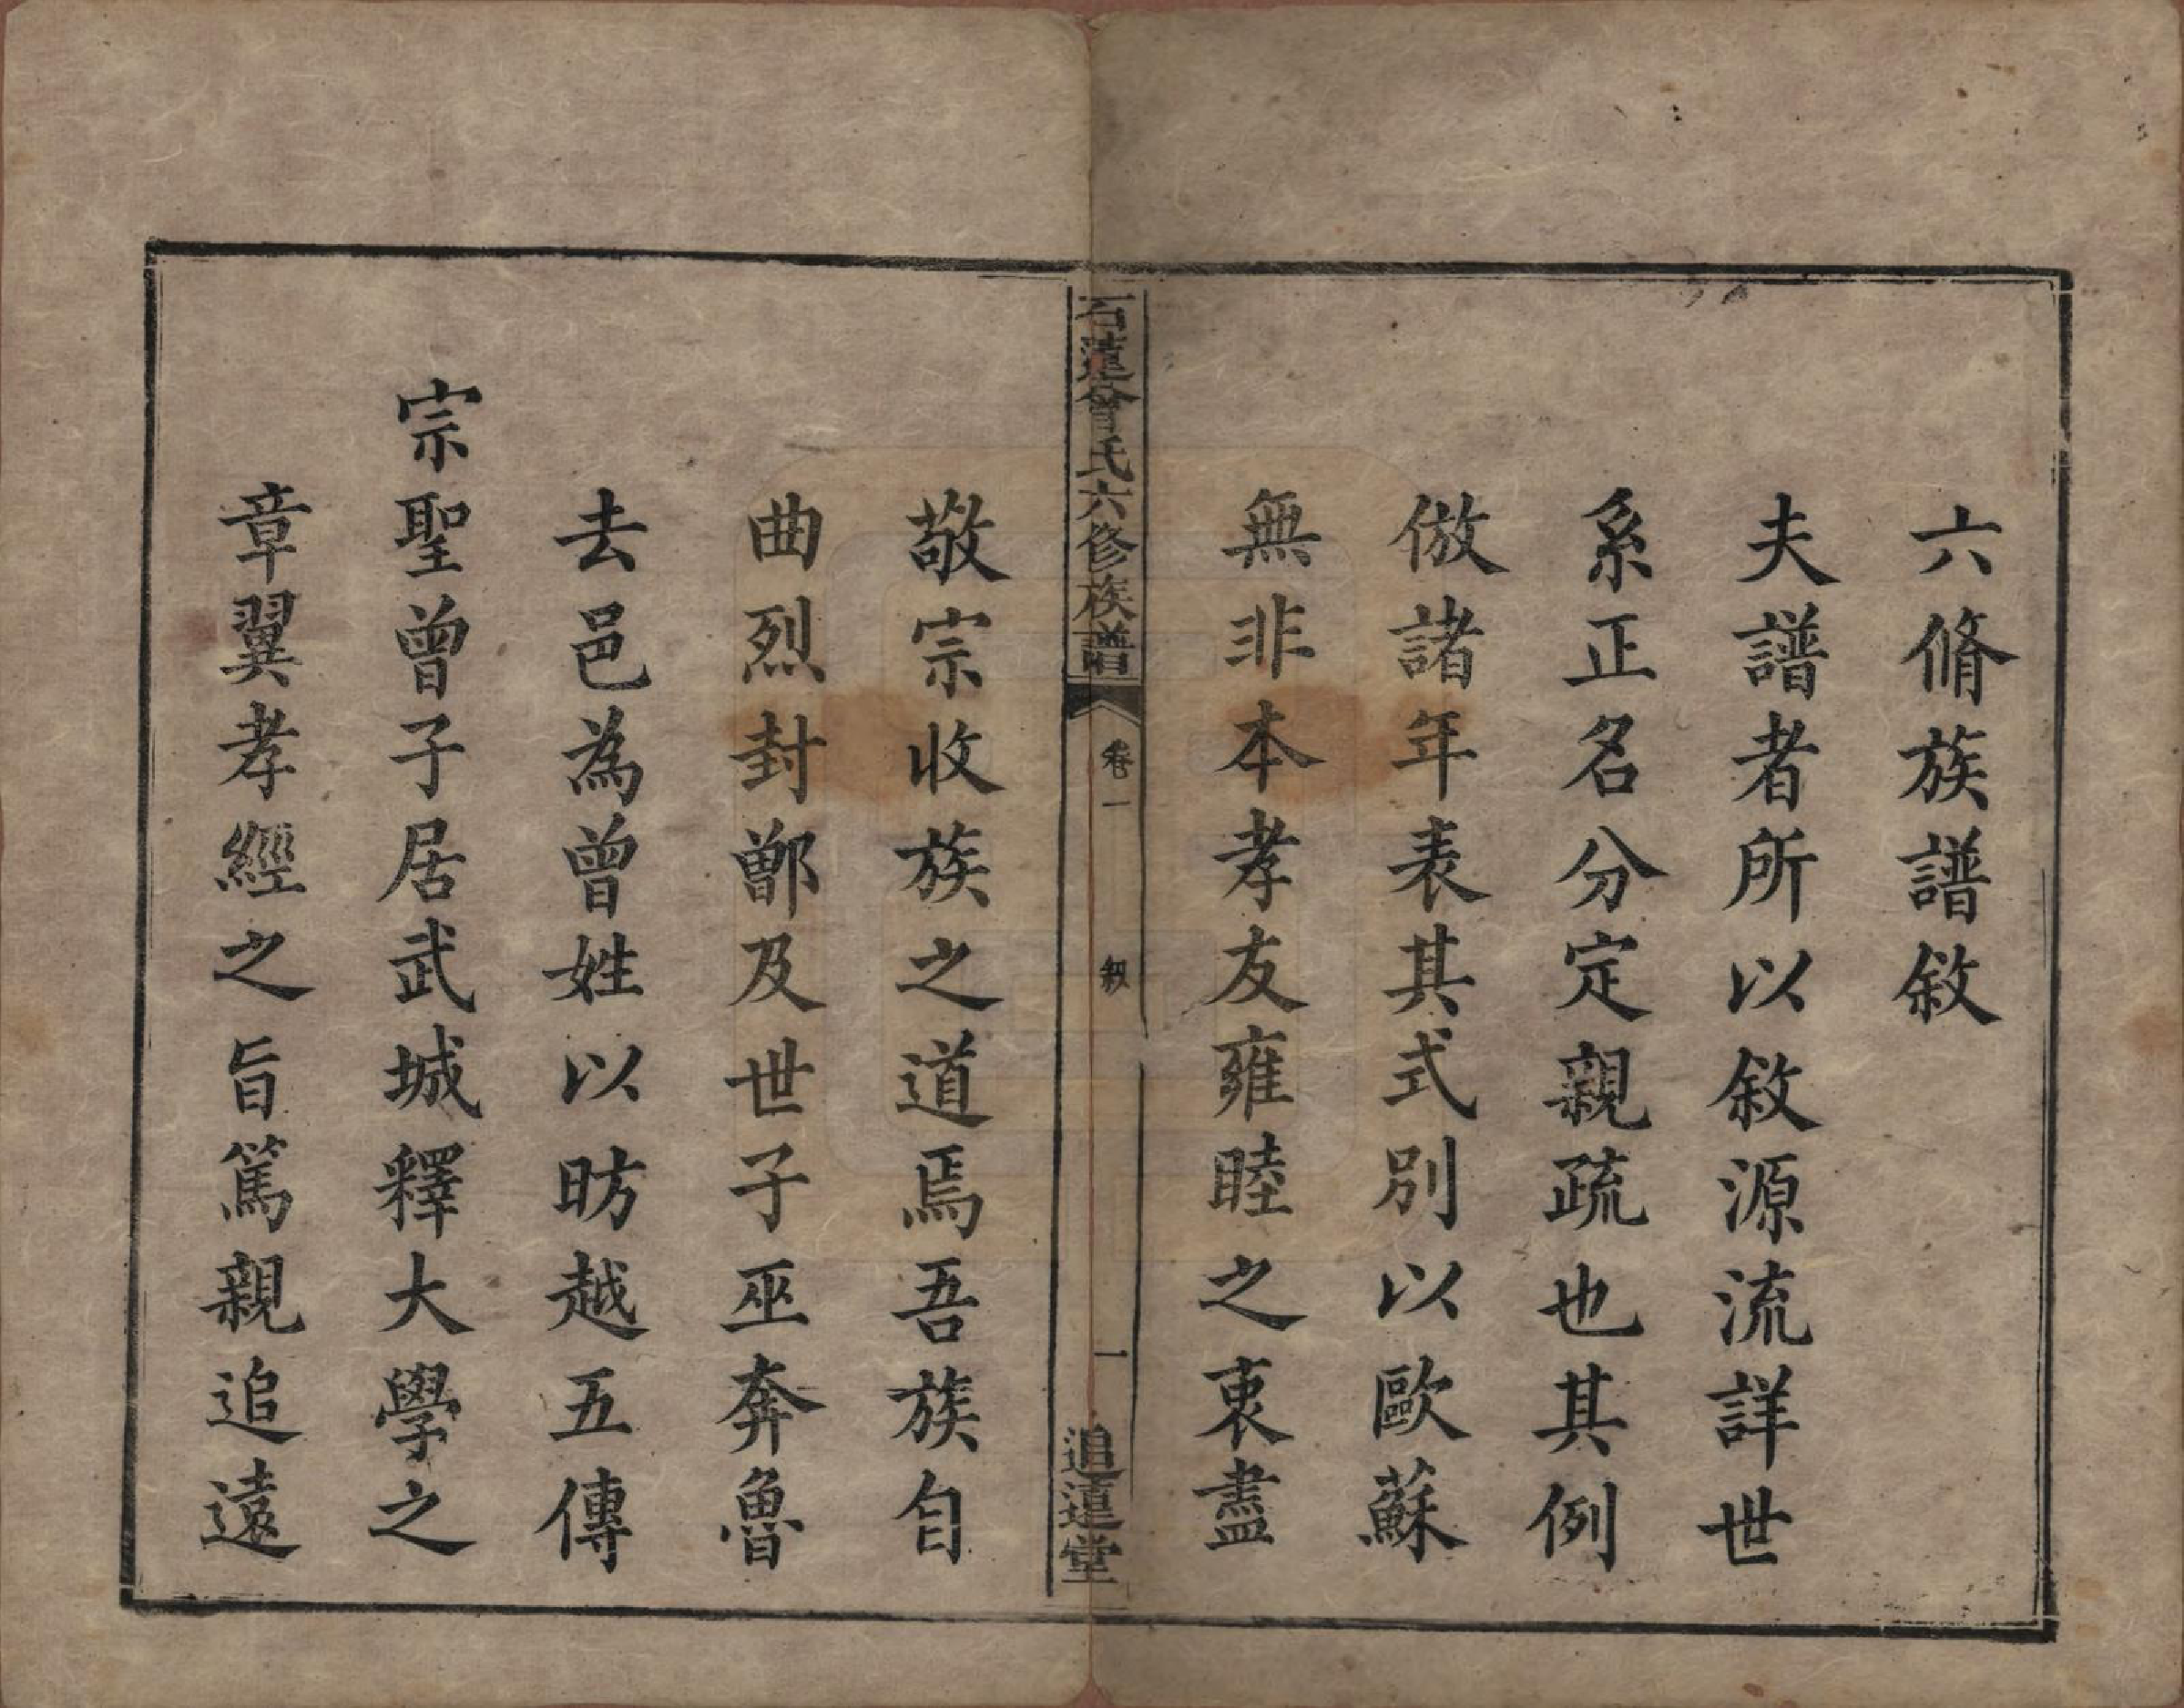 六脩族譜敘
夫譜者所以敘源流詳世
系正名分定親疏也其例
倣諸年表其式別以歐蘇
無非本孝友雍睦之衷盡
石蓮曾氏六修族譜 卷一 敘 一 追遠堂
敬宗收族之道焉吾族自
曲烈封鄫及世子巫奔魯
去邑為曾姓以昉越五傳
宗聖曾子居武城釋大學之
章翼孝經之旨篤親追遠